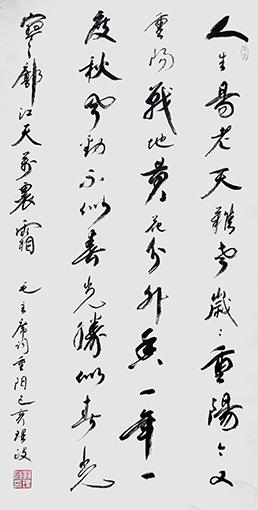 人生易老天難老歲〻重陽今又
重陽戰地黃花分外香一年一
度秋風勁不似春光勝似春光
寥廓江天萬裏霜
毛主席詞重陽己亥